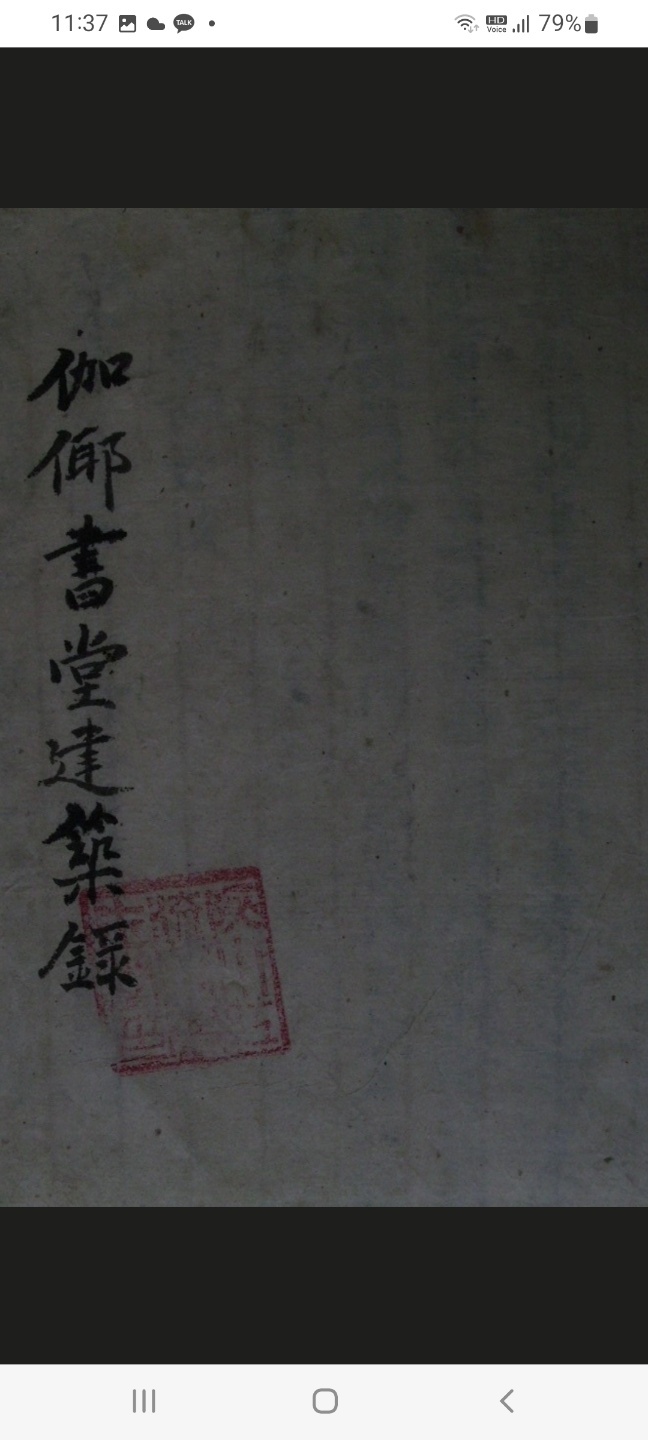 11:37
TALK
HD Voice
79%
伽倻書堂建築錄